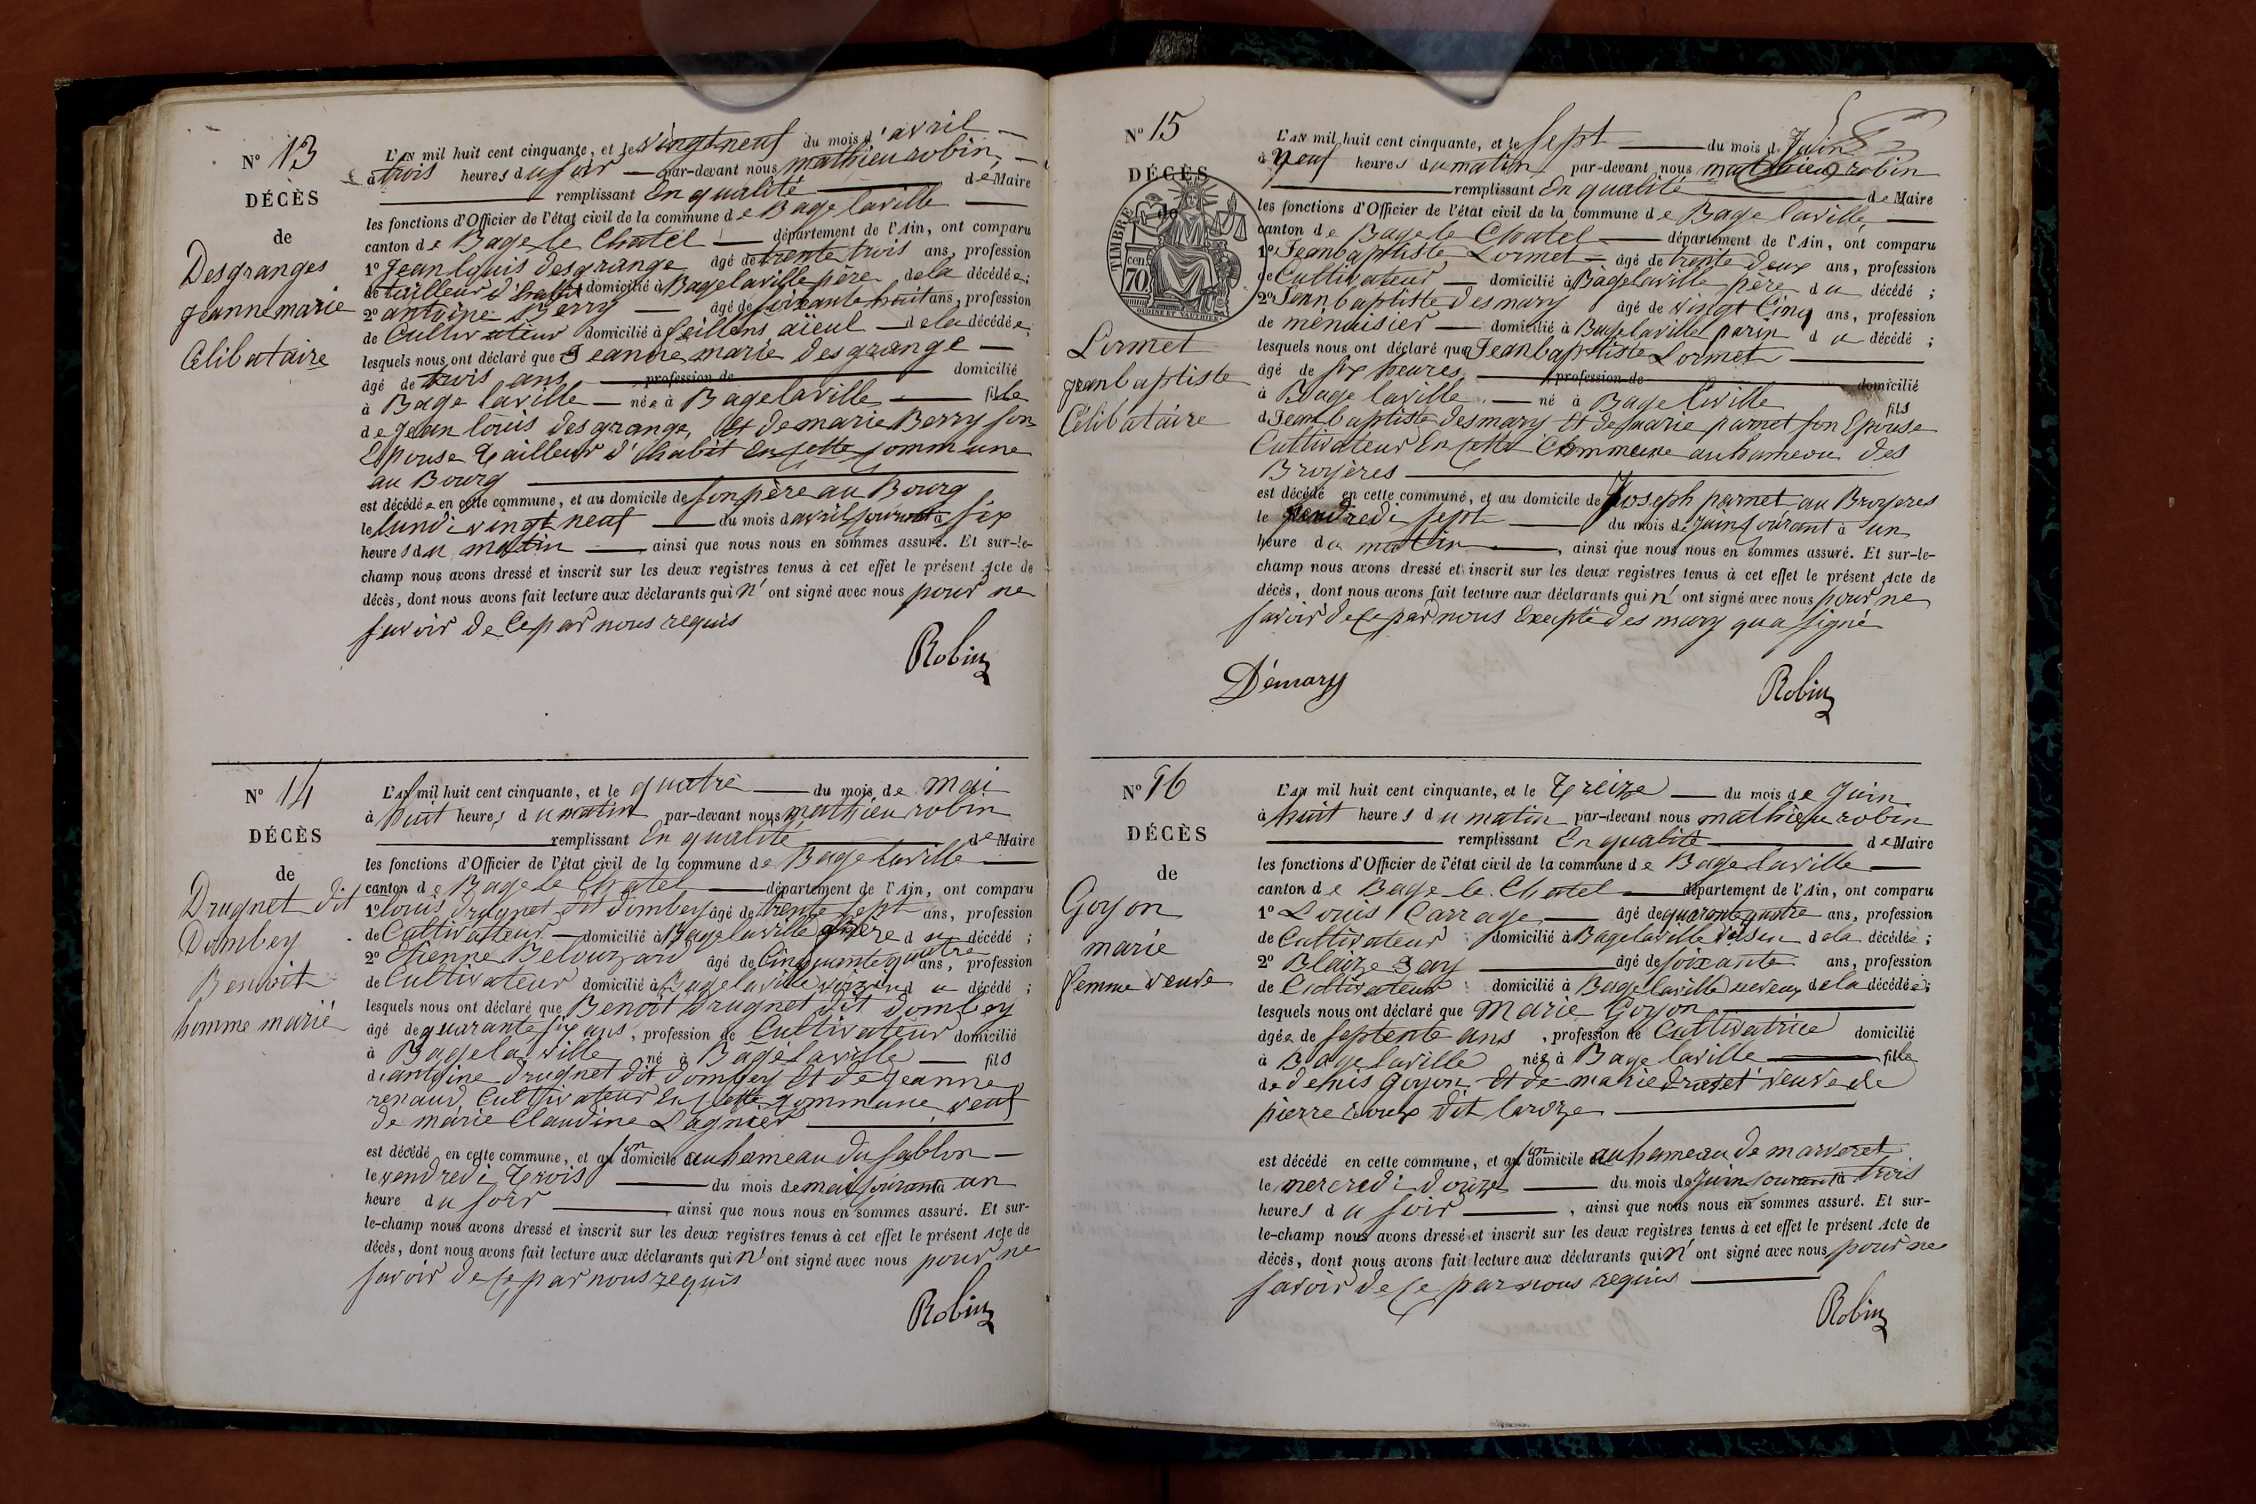 N° 13
DÉCÈS
de
Desgranges
jeanne marie
Célibataire
L'AN mil huit cent cinquante, et le vingt neuf du mois d'avril
à trois heures du soir par-devant nous mathieu robin
remplissant En qualité de Maire
les fonctions d'Officier de l'état civil de la commune de Bage laville
canton de Bage le Chatel département de l'Ain, ont comparu
1° jean louis desgrange âgé de trente trois ans, profession
de tailleur d'habit domicilié à Bagelaville père de la décédée;
2° antoine Berry âgé de soixante huit ans, profession
de Cultivateur domicilié à feillens aïeul de la décédée;
lesquels nous ont déclaré que Jeanne marie desgrange
âgé de trois ans profession de domicilié
à Bage laville née à Bagelaville fille
de jean louis desgrange, et de marie Berry son
Epouse tailleur d'habit en cette commune
au Bourg
est décédée en cette commune, et au domicile de son père au Bourg
le lundi vingt neuf du mois d avril courant à six
heures du matin ainsi que nous nous en sommes assuré. Et sur-le-
champ nous avons dressé et inscrit sur les deux registres tenus à cet effet le présent Acte de
décès, dont nous avons fait lecture aux déclarants qui n' ont signé avec nous pour ne
savoir de ce par nous requis
Robin
N° 14
DÉCÈS
de
Drugnet dit
Dombey
Benoit
homme marié
L'AN mil huit cent cinquante, et le quatre du mois de mai
à huit heures du matin par-devant nous mathieu robin
remplissant En qualité de Maire
les fonctions d'Officier de l'état civil de la commune de Bage laville
canton de Bage le Chatel département de l'Ain, ont comparu
1° louis drugnet dit dombey âgé de trente sept ans, profession
de Cultivateur domicilié à Bagelaville frère du décédé;
2° Etienne Belouzard âgé de Cinquante quatre ans, profession
de Cultivateur domicilié à Bagelaville voizin du décédé;
lesquels nous ont déclaré que Benoit Drugnet dit dombey
âgé de quarante six ans, profession de Cultivateur domicilié
à Bagelaville né à Bagelaville fils
d'antoine Drugnet dit dombey Et de jeanne
renaud Cultivateur En cette commune veuf
de marie Claudine Lagnier
est décédé en cette commune, et au son domicile au hameau du sablon
le vendredi trois du mois de mai courant à un
heure du soir ainsi que nous nous en sommes assuré. Et sur-
le-champ nous avons dressé et inscrit sur les deux registres tenus à cet effet le présent Acte de
décès, dont nous avons fait lecture aux déclarants qui n' ont signé avec nous pour ne
savoir de ce par nous requis
Robin
N° 15
DÉCÈS
de
TIMBRE
70 cen.
Lormet
jean baptiste
Célibataire
L'AN mil huit cent cinquante, et le sept du mois d Juin
à neuf heures du matin par-devant nous mathieu robin
remplissant En qualité de Maire
les fonctions d'Officier de l'état civil de la commune de Bage laville
canton de Bage le Chatel département de l'Ain, ont comparu
1° Jean baptiste Lormet âgé de trente deux ans, profession
de Cultivateur domicilié à Bagelaville père du décédé;
2° Jean baptiste desmary âgé de vingt Cinq ans, profession
de ménuisier domicilié à Bagelaville parin du décédé;
lesquels nous ont déclaré que Jean baptiste Lormet
âgé de six heures profession de domicilié
à Bage laville né à Bage laville
d Jean baptiste desmary Et de marie parnet son Epouse fils
Cultivateur En cette Commune au hameau des
Broyères
est décédé en cette commune, et au domicile de Joseph parnet au Broyeres
le vendredi sept du mois de juin courant à un
heure du matin, ainsi que nous nous en sommes assuré. Et sur-le-
champ nous avons dressé et inscrit sur les deux registres tenus à cet effet le présent Acte de
décès, dont nous avons fait lecture aux déclarants qui n' ont signé avec nous pour ne
savoir de ce par nous Excepté desmary qu a signé
Démary
Robin
N° 16
DÉCÈS
de
Goyon
marie
femme veuve
L'AN mil huit cent cinquante, et le Treize du mois de Juin
à huit heures du matin par-devant nous mathieu robin
remplissant En qualité de Maire
les fonctions d'Officier de l'état civil de la commune de Bage laville
canton de Bage le Chatel département de l'Ain, ont comparu
1° Louis Carrage âgé de quarante quatre ans, profession
de Cultivateur domicilié à Bagelaville voisin de la décédée;
2° Blaize Gay âgé de soixante ans, profession
de Cultivateur domicilié à Bagelaville neveux de la décédée;
lesquels nous ont déclaré que Marie Goyon
agée de septente ans, profession de Cultivatrice domicilié
à Bagelaville née à Bage laville fille
de denis goyon Et de marie veuve de
pierre dit laroze
est décédé en cette commune, et au son domicile au hameau de marveret
le mercredi douze du mois de juin courant à trois
heures du soir, ainsi que nous nous en sommes assuré. Et sur-
le-champ nous avons dressé et inscrit sur les deux registres tenus à cet effet le présent Acte de
décès, dont nous avons fait lecture aux déclarants qui n' ont signé avec nous pour ne
savoir de ce par nous requis
Robin